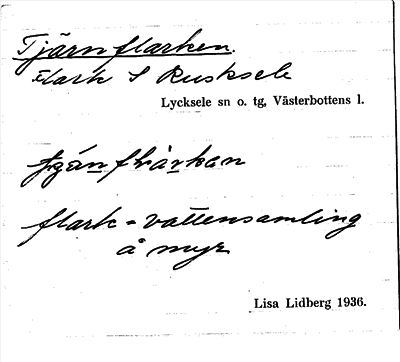 Tjärnflarken.
flark S Rusksele
Lycksele sn o. tg, Västerbottens l.
flark = vattensamling
å myr
Lisa Lidberg 1936.